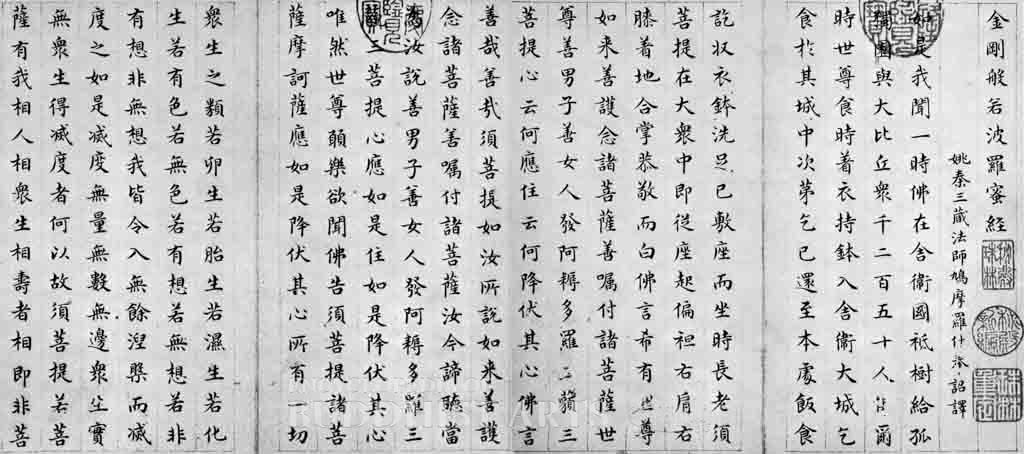 金剛般若波羅蜜經
姚秦三藏法師鳩摩羅什奉詔譯
如是我聞一時佛在舍衛國祇樹給孤
獨園與大比丘衆千二百五十人俱爾
時世尊食時着衣持鉢入舍衛大城乞
食於其城中次苐乞已還至本處飯食
訖収衣鉢洗足已敷座而坐時長老須
菩提在大衆中即従座起偏袒右肩右
膝着地合掌恭敬而白佛言希有世尊
如来善護念諸菩薩善嘱付諸菩薩世
尊善男子善女人發阿耨多羅三藐三
菩提心云何應住云何降伏其心佛言
善哉善哉須菩提如汝所說如来善護
念諸菩薩善嘱付諸菩薩汝今諦聽當
為汝說善男子善女人發阿耨多羅三
藐三菩提心應如是住如是降伏其心
唯然世尊願樂欲聞佛告須菩提諸菩
薩摩訶薩應如是降伏其心所有一切
衆生之類若卵生若胎生若濕生若化
生若有色若無色若有想若無想若非
有想非無想我皆令入無餘涅槃而滅
度之如是滅度無量無數無邊衆生實
無衆生得滅度者何以故須菩提若菩
薩有我相人相衆生相壽者相即非菩
BUDDHIST ART